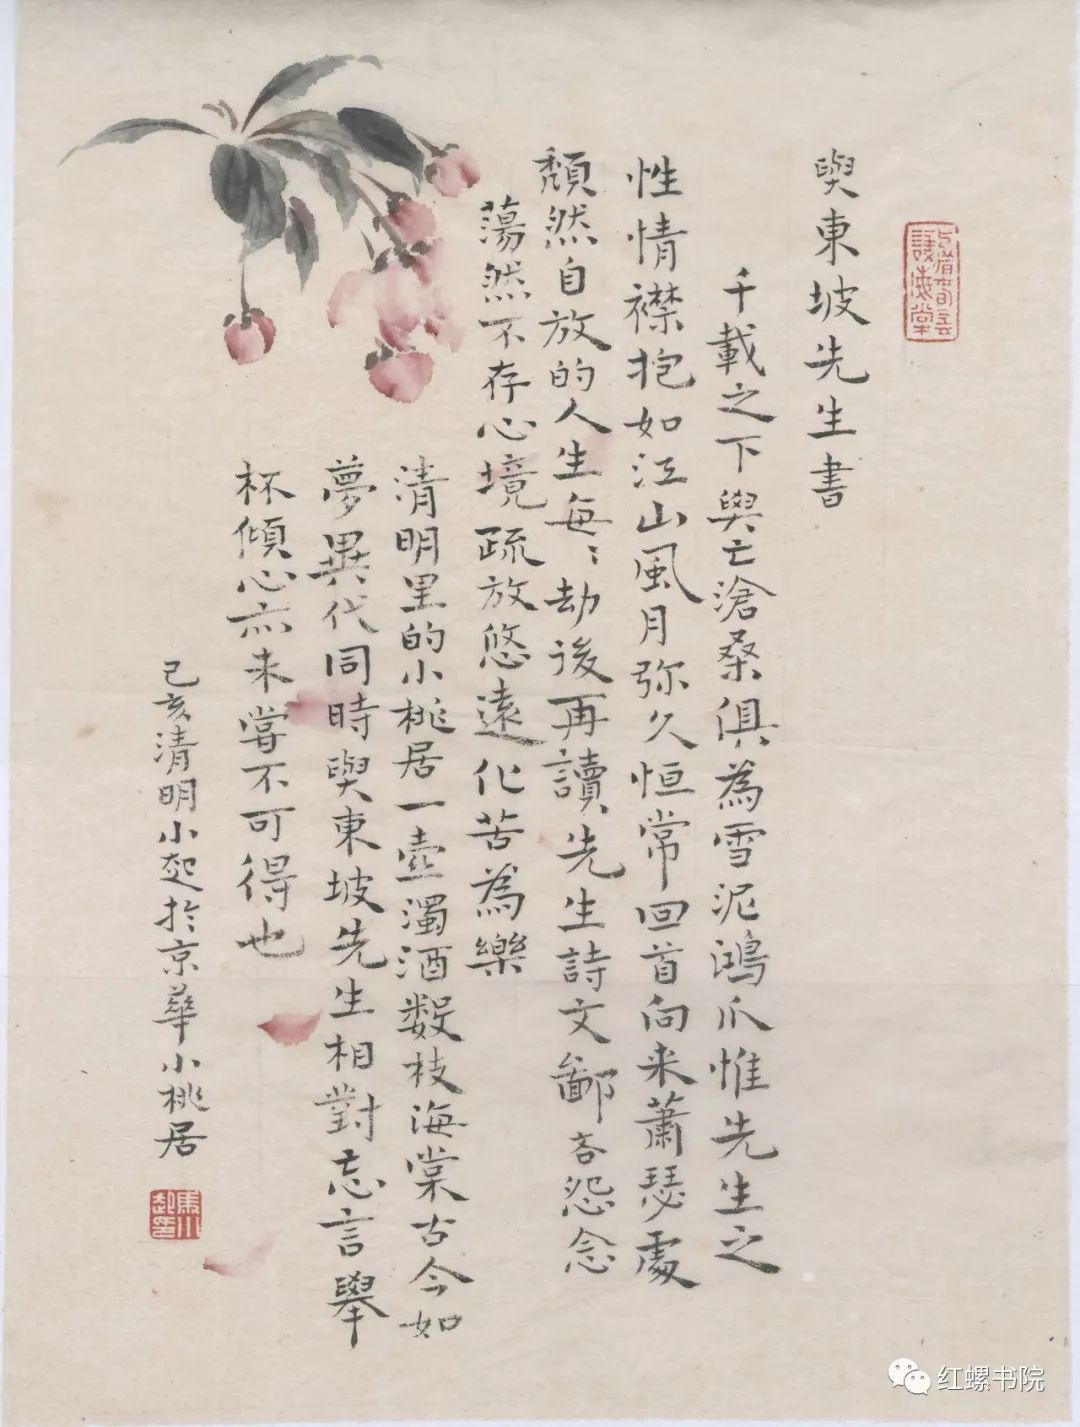 與東坡先生書
千載之下興亡滄桑俱為雪泥鴻爪惟先生之
性情襟抱如江山風月弥久恒常回首向来蕭瑟處
頽然自放的人生每〻劫後再讀先生詩文鄙吝怨念
蕩然不存心境疏放悠遠化苦為樂
清明里的小桃居一壺濁酒数枝海棠古今如
夢異代同時與東坡先生相對忘言舉
杯傾心亦未嘗不可得也
己亥清明小起於京華小桃居
馬小起印
红螺书院